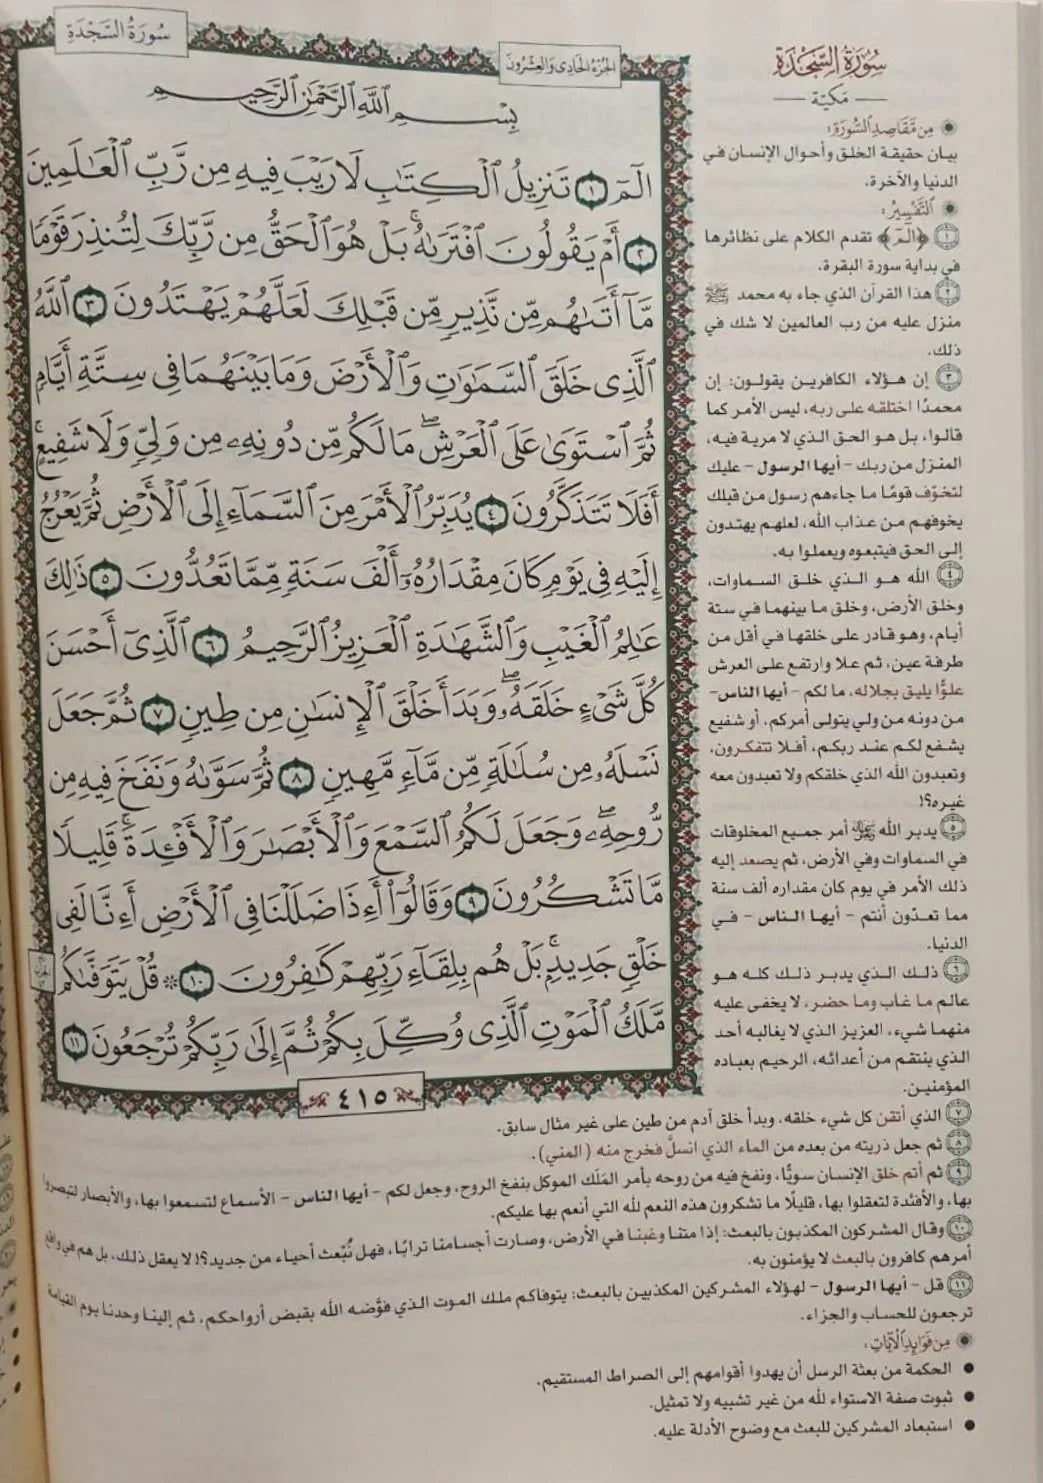 سُورَةُ السَّجْدَةِ
الجُزْءُ الحَادِي وَالعِشْرُونَ
بِسْمِ ٱللَّهِ ٱلرَّحْمَٰنِ ٱلرَّحِيمِ
الٓمٓ ١ تَنزِيلُ ٱلْكِتَٰبِ لَا رَيْبَ فِيهِ مِن رَّبِّ ٱلْعَٰلَمِينَ
٢ أَمْ يَقُولُونَ ٱفْتَرَىٰهُ ۚ بَلْ هُوَ ٱلْحَقُّ مِن رَّبِّكَ لِتُنذِرَ قَوْمًا
مَّآ أَتَىٰهُم مِّن نَّذِيرٍ مِّن قَبْلِكَ لَعَلَّهُمْ يَهْتَدُونَ ٣ ٱللَّهُ
ٱلَّذِى خَلَقَ ٱلسَّمَٰوَٰتِ وَٱلْأَرْضَ وَمَا بَيْنَهُمَا فِى سِتَّةِ أَيَّامٍ
ثُمَّ ٱسْتَوَىٰ عَلَى ٱلْعَرْشِ ۖ مَا لَكُم مِّن دُونِهِۦ مِن وَلِىٍّ وَلَا شَفِيعٍ ۚ
أَفَلَا تَتَذَكَّرُونَ ٤ يُدَبِّرُ ٱلْأَمْرَ مِنَ ٱلسَّمَآءِ إِلَى ٱلْأَرْضِ ثُمَّ يَعْرُجُ
إِلَيْهِ فِى يَوْمٍ كَانَ مِقْدَارُهُۥٓ أَلْفَ سَنَةٍ مِّمَّا تَعُدُّونَ ٥ ذَٰلِكَ
عَٰلِمُ ٱلْغَيْبِ وَٱلشَّهَٰدَةِ ٱلْعَزِيزُ ٱلرَّحِيمُ ٦ ٱلَّذِىٓ أَحْسَنَ
كُلَّ شَىْءٍ خَلَقَهُۥ ۖ وَبَدَأَ خَلْقَ ٱلْإِنسَٰنِ مِن طِينٍ ٧ ثُمَّ جَعَلَ
نَسْلَهُۥ مِن سُلَٰلَةٍ مِّن مَّآءٍ مَّهِينٍ ٨ ثُمَّ سَوَّىٰهُ وَنَفَخَ فِيهِ مِن
رُّوحِهِۦ ۖ وَجَعَلَ لَكُمُ ٱلسَّمْعَ وَٱلْأَبْصَٰرَ وَٱلْأَفْـِٔدَةَ ۚ قَلِيلًا
مَّا تَشْكُرُونَ ٩ وَقَالُوٓا۟ أَءِذَا ضَلَلْنَا فِى ٱلْأَرْضِ أَءِنَّا لَفِى
خَلْقٍ جَدِيدٍۭ ۚ بَلْ هُم بِلِقَآءِ رَبِّهِمْ كَٰفِرُونَ ١٠ ۞ قُلْ يَتَوَفَّىٰكُم
مَّلَكُ ٱلْمَوْتِ ٱلَّذِى وُكِّلَ بِكُمْ ثُمَّ إِلَىٰ رَبِّكُمْ تُرْجَعُونَ ١١
٤١٥
سُورَةُ السَّجْدَةِ
مَكِيّة
مِن مَّقَاصِدِ السُّورَةِ:
بيان حقيقة الخلق وأحوال الإنسان في
الدنيا والآخرة.
التَّفْسِيرُ:
١ ﴿الٓمٓ﴾ تقدم الكلام على نظائرها
في بداية سورة البقرة.
٢ هذا القرآن الذي جاء به محمد ﷺ
منزل عليه من رب العالمين لا شك في
ذلك.
٣ إن هؤلاء الكافرين يقولون: إن
محمدًا اختلقه على ربه، ليس الأمر كما
قالوا، بل هو الحق الذي لا مرية فيه،
المنزل من ربك - أيها الرسول - عليك
لتخوّف قومًا ما جاءهم رسول من قبلك
يخوفهم من عذاب الله، لعلهم يهتدون
إلى الحق فيتبعوه ويعملوا به.
٤ الله هو الذي خلق السماوات،
وخلق الأرض، وخلق ما بينهما في ستة
أيام، وهو قادر على خلقها في أقل من
طرفة عين، ثم علا وارتفع على العرش
علوًّا يليق بجلاله، ما لكم - أيها الناس-
من دونه من ولي يتولى أمركم، أو شفيع
يشفع لكم عند ربكم، أفلا تتفكرون،
وتعبدون الله الذي خلقكم ولا تعبدون معه
غيره؟!
٥ يدبر الله أمر جميع المخلوقات
في السماوات وفي الأرض، ثم يصعد إليه
ذلك الأمر في يوم كان مقداره ألف سنة
مما تعدّون أنتم - أيها الناس - في
الدنيا.
٦ ذلك الذي يدبر ذلك كله هو
عالم ما غاب وما حضر، لا يخفى عليه
منهما شيء، العزيز الذي لا يغالبه أحد
الذي ينتقم من أعدائه، الرحيم بعباده
المؤمنين.
٧ الذي أتقن كل شيء خلقه، وبدأ خلق آدم من طين على غير مثال سابق.
٨ ثم جعل ذريته من بعده من الماء الذي انسلَّ فخرج منه (المني).
٩ ثم أتم خلق الإنسان سويًّا، ونفخ فيه من روحه بأمر المَلَك الموكل بنفخ الروح، وجعل لكم - أيها الناس - الأسماع لتسمعوا بها، والأبصار لتبصروا
بها، والأفئدة لتعقلوا بها، قليلًا ما تشكرون هذه النعم لله التي أنعم بها عليكم.
١٠ وقال المشركون المكذبون بالبعث: إذا متنا وغبنا في الأرض، وصارت أجسامنا ترابًا، فهل نُبْعث أحياء من جديد؟! لا يعقل ذلك، بل هم في واقع
أمرهم كافرون بالبعث لا يؤمنون به.
١١ قل - أيها الرسول - لهؤلاء المشركين المكذبين بالبعث: يتوفاكم ملك الموت الذي فوَّضه الله بقبض أرواحكم، ثم إلينا وحدنا يوم القيامة
ترجعون للحساب والجزاء.
مِن فَوَابِدِ الْآيَاتِ:
• الحكمة من بعثة الرسل أن يهدوا أقوامهم إلى الصراط المستقيم.
• ثبوت صفة الاستواء لله من غير تشبيه ولا تمثيل.
• استبعاد المشركين للبعث مع وضوح الأدلة عليه.